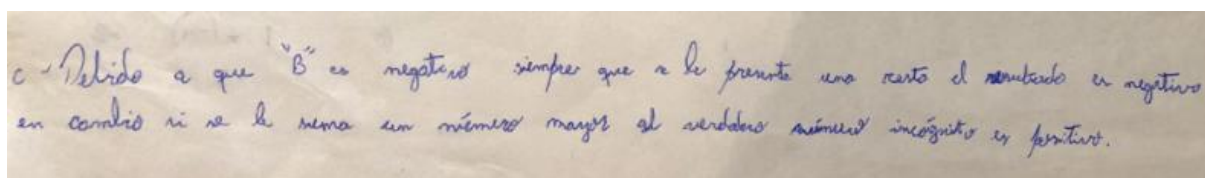 c - Debido a que "B" es negativo siempre que se le presente una resta el resultado es negativo
en cambio si se le suma un número mayor al verdadero número incógnito es positivo.